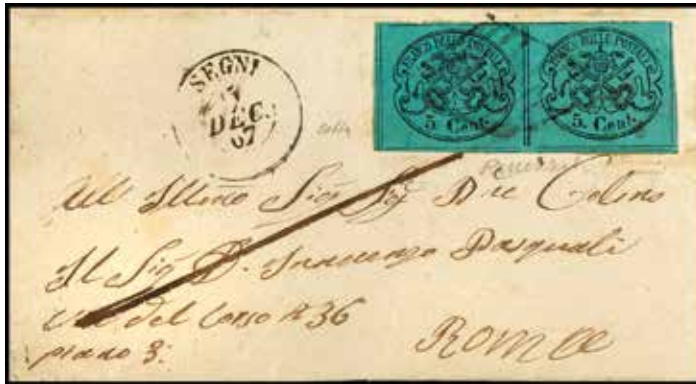 SEGNI
DEC.
67
FRANCO BOLLO POSTALE
5 Cent.
FRANCO BOLLO POSTALE
5 Cent.
All' Illmo Sig Sig
Al Sig D. Innocenzo Pasquali
Via del Corso N 36
piano 3.
Roma